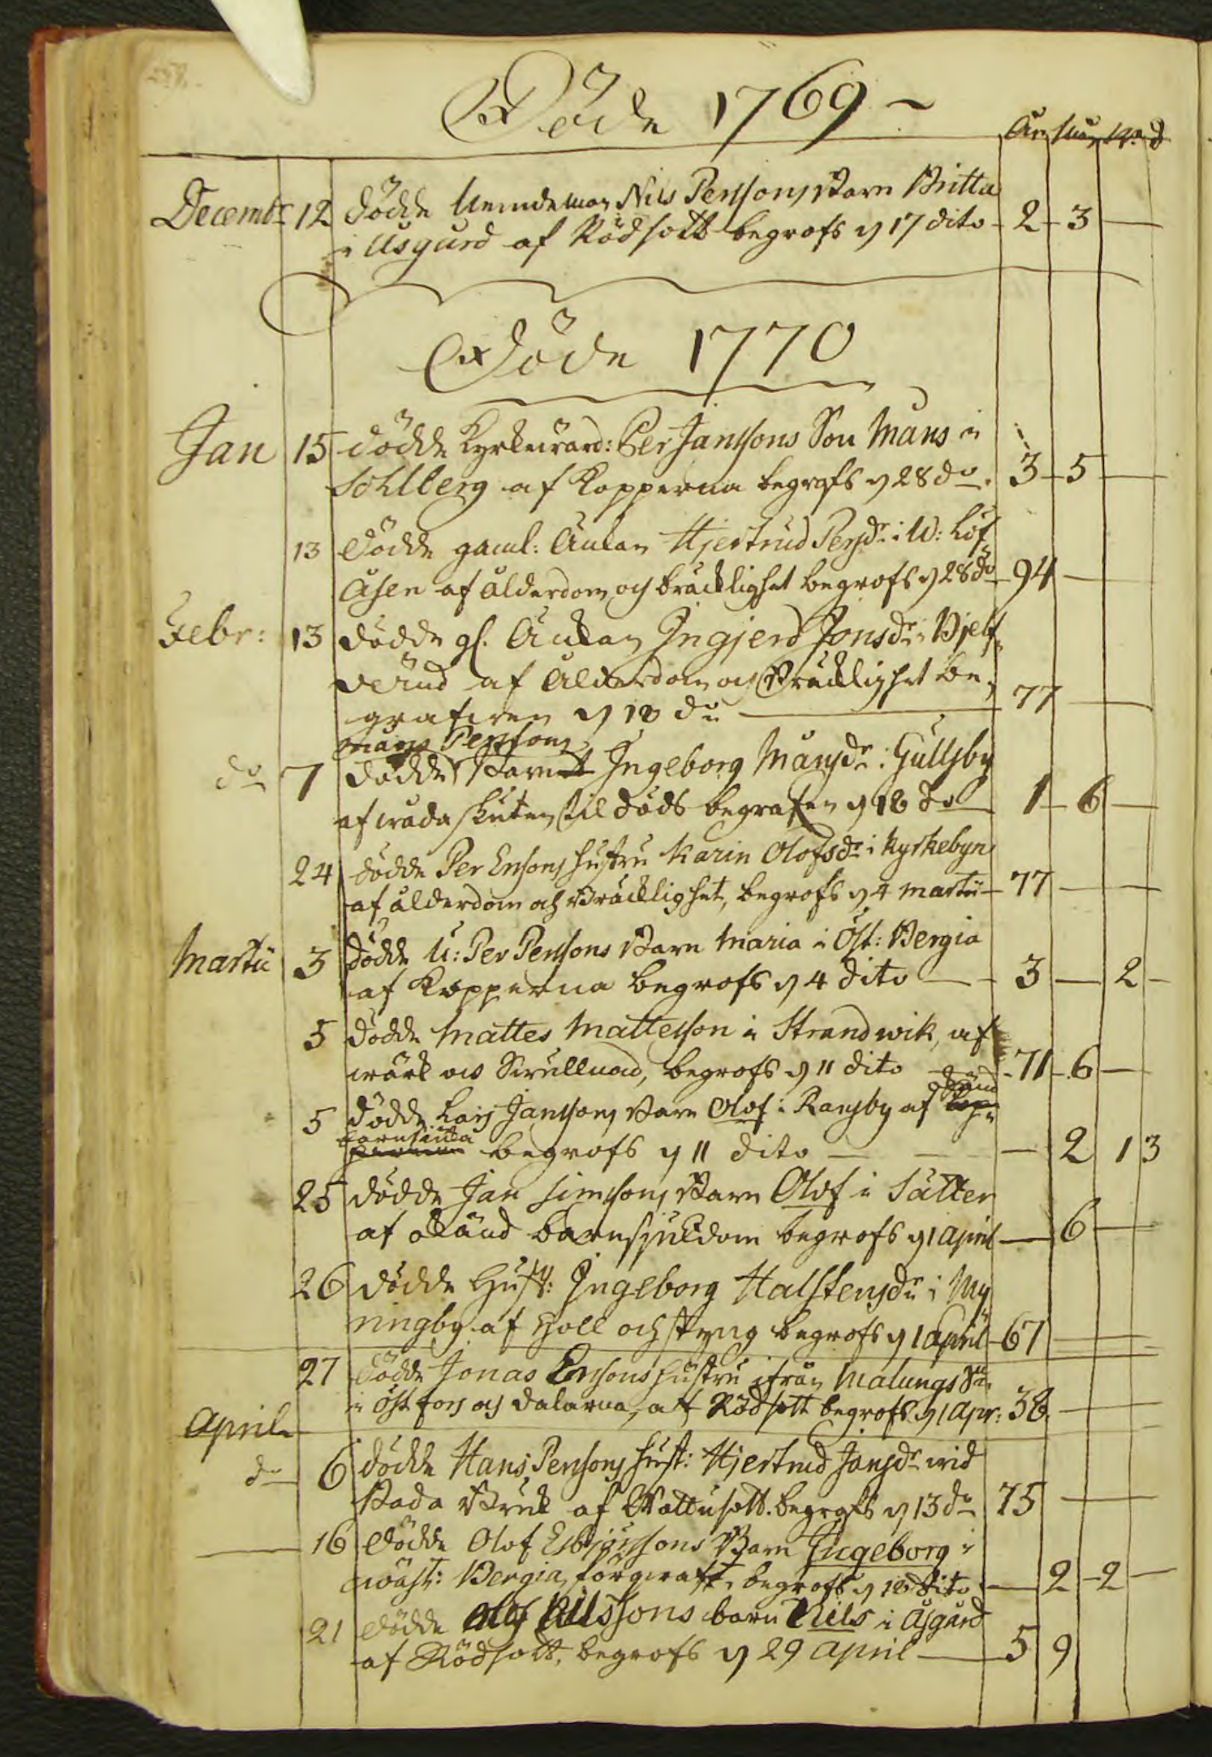 258.
Döde 1769 –
År Mån V. d
Decembr 12 dödde Nemdeman Nils Perssons Barn Britta
i Åsgård af Rödsott begrofs d 17 dito – 2 – 3 –
Döde 1770
Jan 15 dödde Kyrkiovärd: Per Janssons Son Måns i
Sohlberg af Kopperna begrofs d 28 do. 3 – 5 –
13 dödde gaml: Änkan Hjertrud Persdr i N: Löf
åsen af ålderdom och bräcklighet begrofs d 28 do 94 –
Febr: 13 dödde gl. Änkan Ingjerd Jonsdr i Bjelf
verud af Ålderdom och Bräcklighet be,
grafven d 18 do – 77 –
Måns Perssons
do 7 dödde Barnet Ingeborg Månsdr i Gullsby
af våda skuten til döds begrafen d 18 do – 1 – 6 –
24 dödde Per Ersons hustru Karin Olofsdr i Kyrkebyn
af ålderdom och Bräcklighet, begrofs d 4 Martii – 77 – –
Martii 3 dödde U: Per Perssons Barn Maria i Öst: Bergia
af Kopperna begrofs d 4 dito – 3 – 2 –
5 dödde Mattes Mattesson i Strandwik, af
wärk och Swullnad, begrofs d 11 dito – 71 – 6 –
okänd
5 dödde Lars Janssons Barn Olof i Ransby af Kop=
barnsiuka
perna begrofs d 11 dito – – – 2 1 3
25 dödde Jan Simsons Barn Olof i Sätter
af okänd barnsjukdom begrofs d 1 April – 6 –
26 dödde Hust: Ingeborg Halstensdr i My
ningby af Håll och styng begrofs d 1 April – 67 –
27 dödde Jonas Ersons hustru ifrån Malungs Sn
i Öst fors och Dalarna, af Rödsott begrofs d 1 Apr: 38 –
April
do 6 dödde Hans Perssons Hust: Hjertrud Jonsdr wid
Stada Bruk af Wattusott. begrofs d 13 do 75 – –
– 16 dödde Olof Esbjörssons Barn Ingeborg i
wäst: Bergia, begrofs d 18 dito – 2 – 2 –
21 dödde Olof Nilssons barn Nils i Åsgård
af Rödsott, begrofs d 29 April – 5 9